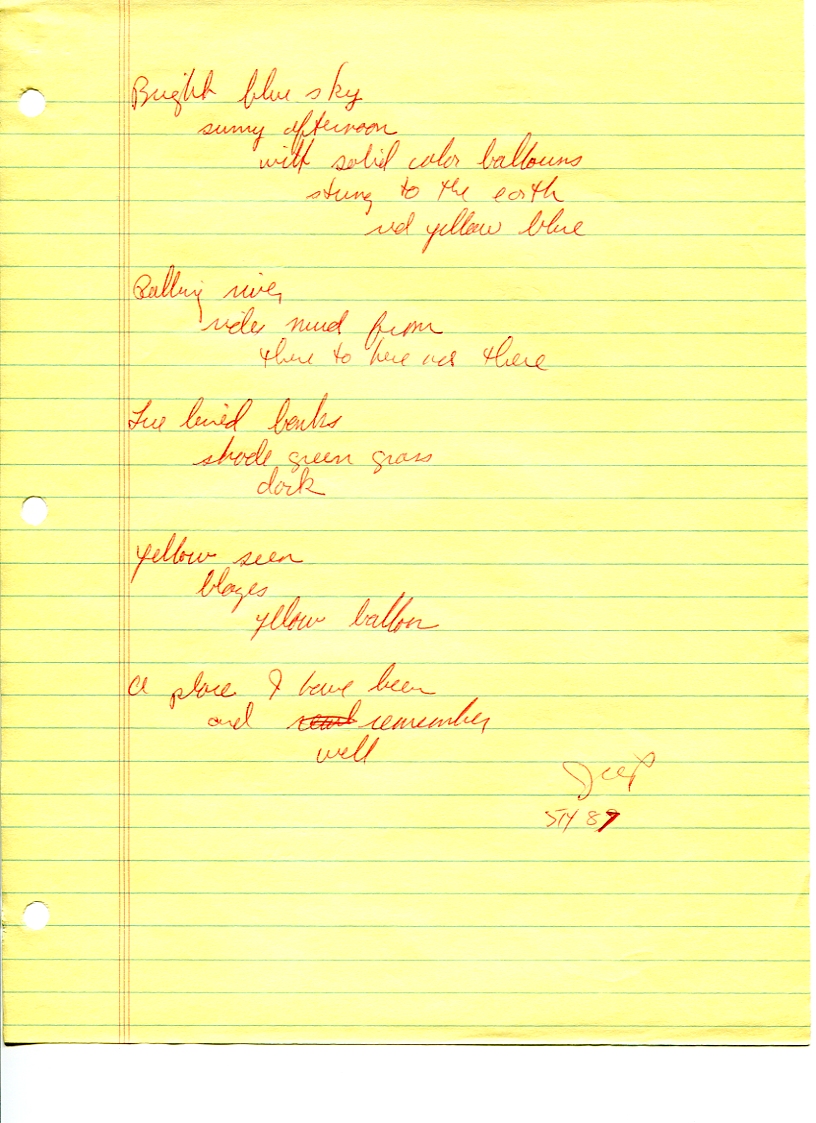 Bright blue sky
sunny afternoon
with solid color ballouns
strung to the earth
red yellow blue
Rolling river
rides mud from
there to here not there
Tree lined banks
shade green grass
dark
Yellow seen
blazes
yellow balloon
A place I have been
and remember
well